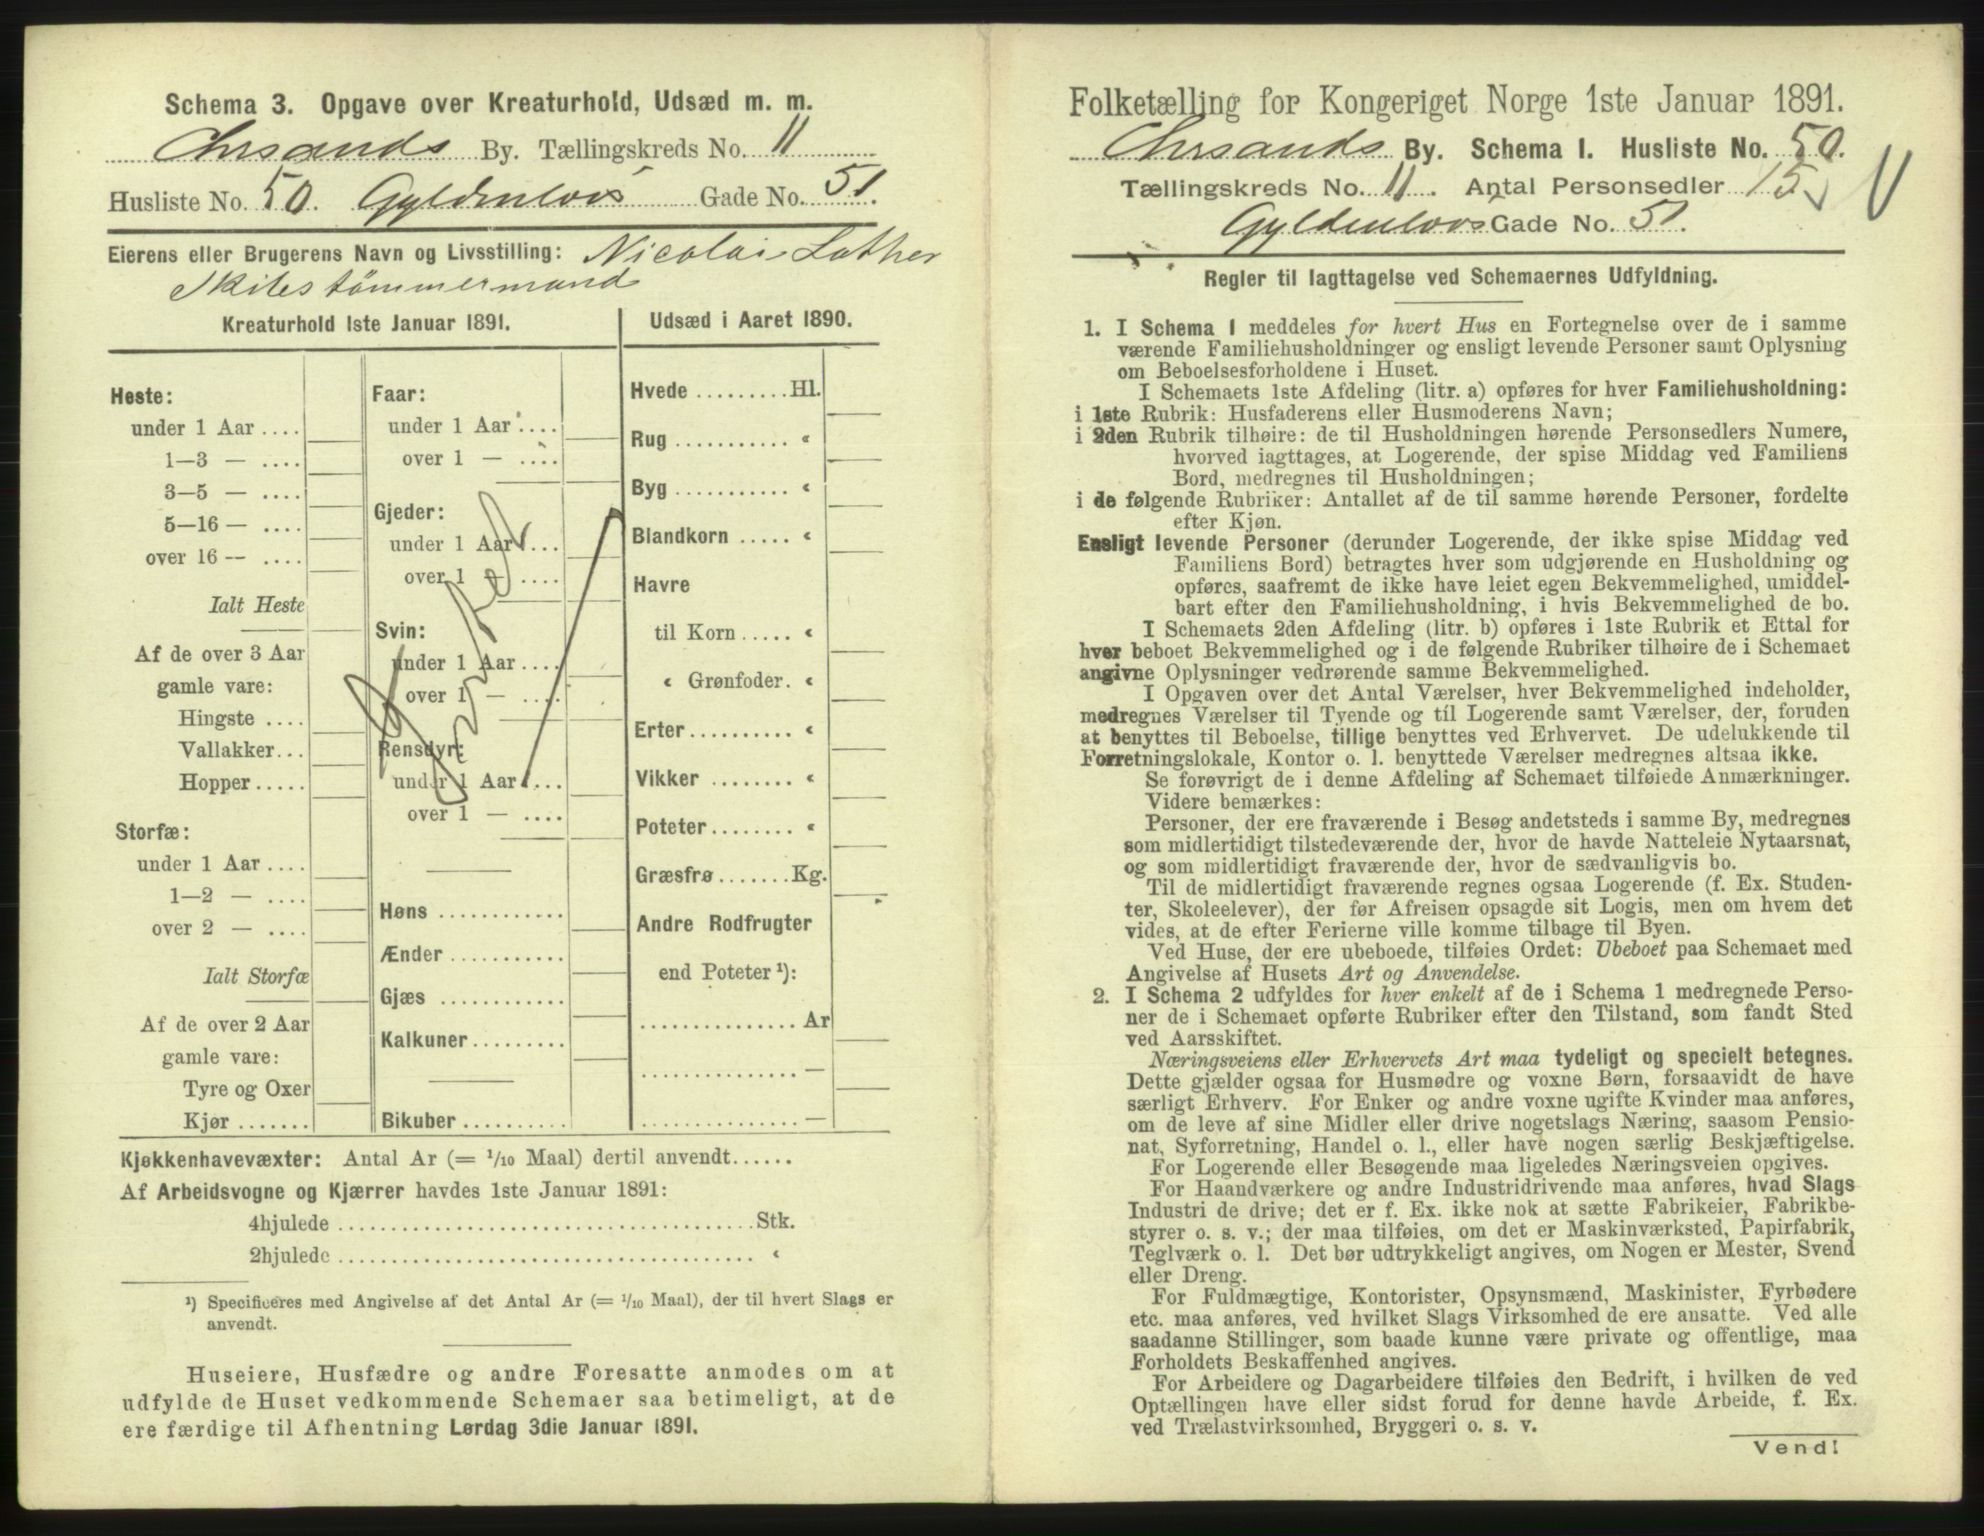 Schema 3. Opgave over Kreaturhold, Udsæd m. m.
Chrsands By. Tællingskreds No. 11
Husliste No. 50. Gyldenlovs Gade No. 51.
Eierens eller Brugerens Navn og Livsstilling: Nicolai Lother
Skibstømmermand
Kreaturhold 1ste Januar 1891.
Heste:
under 1 Aar ....
1—3 — ....
3—5 — ....
5—16 — ....
over 16 — ....
Ialt Heste
Af de over 3 Aar
gamle vare:
Hingste ....
Vallakker...
Hopper.....
Storfæ:
under 1 Aar ....
1—2 — ....
over 2 — ....
Ialt Storfæ
Af de over 2 Aar
gamle vare:
Tyre og Oxer
Kjør .......
Faar:
under 1 Aar ....
over 1 — ....
Gjeder:
under 1 Aar ....
over 1 — ....
Svin:
under 1 Aar ....
over 1 — ....
Rensdyr:
under 1 Aar ....
over 1 — ....
Høns ............
Ænder ...........
Gjæs ............
Kalkuner.........
Bikuber ..........
Udsæd i Aaret 1890.
Hvede .........Hl.
Rug ........... «
Byg ........... «
Blandkorn ..... «
Havre
til Korn ..... «
« Grønfoder. «
Erter.......... «
Vikker ........ «
Poteter........ «
Græsfrø.......Kg.
Andre Rodfrugter
end Poteter ¹):
............... Ar
............... —
............... —
Kjøkkenhavevæxter: Antal Ar (= 1/10 Maal) dertil anvendt......
Af Arbeidsvogne og Kjærrer havdes 1ste Januar 1891:
4hjulede ........................................Stk.
2hjulede ........................................ «
¹) Specificeres med Angivelse af det Antal Ar (= 1/10 Maal), der til hvert Slags er
anvendt.
Huseiere, Husfædre og andre Foresatte anmodes om at
udfylde de Huset vedkommende Schemaer saa betimeligt, at de
ere færdige til Afhentning Lørdag 3die Januar 1891.
Folketælling for Kongeriget Norge 1ste Januar 1891.
Chrsands By. Schema I. Husliste No. 50.
Tællingskreds No. 11. Antal Personsedler 15
Gyldenlovs Gade No. 51.
Regler til Iagttagelse ved Schemaernes Udfyldning.
1. I Schema I meddeles for hvert Hus en Fortegnelse over de i samme
værende Familiehusholdninger og ensligt levende Personer samt Oplysning
om Beboelsesforholdene i Huset.
I Schemaets 1ste Afdeling (litr. a) opføres for hver Familiehusholdning:
i 1ste Rubrik: Husfaderens eller Husmoderens Navn;
i 2den Rubrik tilhøire: de til Husholdningen hørende Personsedlers Numere,
hvorved iagttages, at Logerende, der spise Middag ved Familiens
Bord, medregnes til Husholdningen;
i de følgende Rubriker: Antallet af de til samme hørende Personer, fordelte
efter Kjøn.
Ensligt levende Personer (derunder Logerende, der ikke spise Middag ved
Familiens Bord) betragtes hver som udgjørende en Husholdning og
opføres, saafremt de ikke have leiet egen Bekvemmelighed, umiddel-
bart efter den Familiehusholdning, i hvis Bekvemmelighed de bo.
I Schemaets 2den Afdeling (litr. b) opføres i 1ste Rubrik et Ettal for
hver beboet Bekvemmelighed og i de følgende Rubriker tilhøire de i Schemaet
angivne Oplysninger vedrørende samme Bekvemmelighed.
I Opgaven over det Antal Værelser, hver Bekvemmelighed indeholder,
medregnes Værelser til Tyende og til Logerende samt Værelser, der, foruden
at benyttes til Beboelse, tillige benyttes ved Erhvervet. De udelukkende til
Forretningslokale, Kontor o. l. benyttede Værelser medregnes altsaa ikke.
Se forøvrigt de i denne Afdeling af Schemaet tilføiede Anmærkninger.
Videre bemærkes:
Personer, der ere fraværende i Besøg andetsteds i samme By, medregnes
som midlertidigt tilstedeværende der, hvor de havde Natteleie Nytaarsnat,
og som midlertidigt fraværende der, hvor de sædvanligvis bo.
Til de midlertidigt fraværende regnes ogsaa Logerende (f. Ex. Studen-
ter, Skoleelever), der før Afreisen opsagde sit Logis, men om hvem det
vides, at de efter Ferierne ville komme tilbage til Byen.
Ved Huse, der ere ubeboede, tilføies Ordet: Ubeboet paa Schemaet med
Angivelse af Husets Art og Anvendelse.
2. I Schema 2 udfyldes for hver enkelt af de i Schema 1 medregnede Perso-
ner de i Schemaet opførte Rubriker efter den Tilstand, som fandt Sted
ved Aarsskiftet.
Næringsveiens eller Erhvervets Art maa tydeligt og specielt betegnes.
Dette gjælder ogsaa for Husmødre og voxne Børn, forsaavidt de have
særligt Erhverv. For Enker og andre voxne ugifte Kvinder maa anføres,
om de leve af sine Midler eller drive nogetslags Næring, saasom Pensio-
nat, Syforretning, Handel o. l., eller have nogen særlig Beskjæftigelse.
For Logerende eller Besøgende maa ligeledes Næringsveien opgives.
For Haandværkere og andre Industridrivende maa anføres, hvad Slags
Industri de drive; det er f. Ex. ikke nok at sætte Fabrikeier, Fabrikbe-
styrer o. s. v.; der maa tilføies, om det er Maskinværksted, Papirfabrik,
Teglværk o. l. Det bør udtrykkeligt angives, om Nogen er Mester, Svend
eller Dreng.
For Fuldmægtige, Kontorister, Opsynsmænd, Maskinister, Fyrbødere
etc. maa anføres, ved hvilket Slags Virksomhed de ere ansatte. Ved alle
saadanne Stillinger, som baade kunne være private og offentlige, maa
Forholdets Beskaffenhed angives.
For Arbeidere og Dagarbeidere tilføies den Bedrift, i hvilken de ved
Optællingen have eller sidst forud for denne havde Arbeide, f. Ex.
ved Trælastvirksomhed, Bryggeri o. s. v.
Vend!